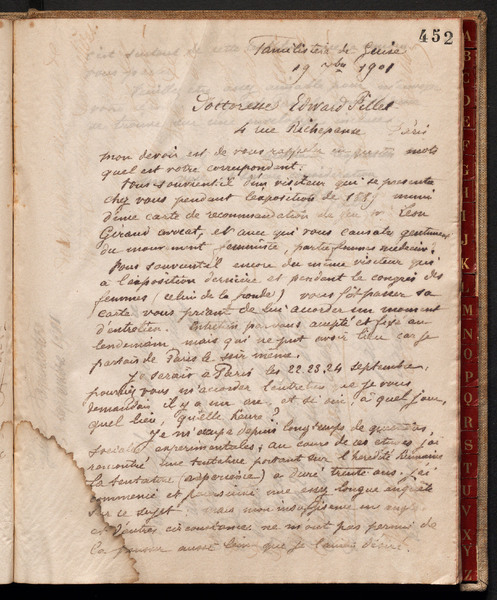 452
Familistère de Guise
19 7bre 1901
Doctoresse Edward Pillet
4 rue Richepanse Paris
mon devoir est de vous rappeler en quelques mots
quel est votre correspondant.
Vous souvient-il d'un visiteur qui se présenta
chez vous pendant l'exposition de 1889 muni
d'une carte de recommandation de feu Mr Léon
Giraud avocat, et avec qui vous causâtes gentiment
du mouvement féministe, partie femmes médecins;
Vous souvient-il encore du même visiteur qui
à l'exposition dernière et pendant le congrès des
femmes (celui de la fronde) vous fit passer sa
carte vous priant de lui accorder un moment
d'entretien. Entretien par vous accepté et fixé au
lendemain mais qui ne put avoir lieu car je
partais de Paris le soir même.
Je serais à Paris les 22, 23, 24 septembre,
pourriez vous m'accorder l'entretien que je vous
demandais il y a un an, et si oui, à quel jour,
quel lieu, quelle heure?
Je m'occupe depuis longtemps de questions
sociales expérimentales; au cours de ces études j'ai
rencontré une tentative portant sur l'hérédité humaine
La tentative (expérience) a duré trente ans. J'ai
commencé et poursuivi une assez longue enquête
sur ce sujet mais mon insuffisance en anglais
et d'autres circonstances ne m'ont pas permis de
la pousser aussi loin que je l'aurais désiré.
A
B
C
D
E
F
G
H
I
J
K
L
M
N
O
P
Q
R
S
T
U
V
W
XY
Z